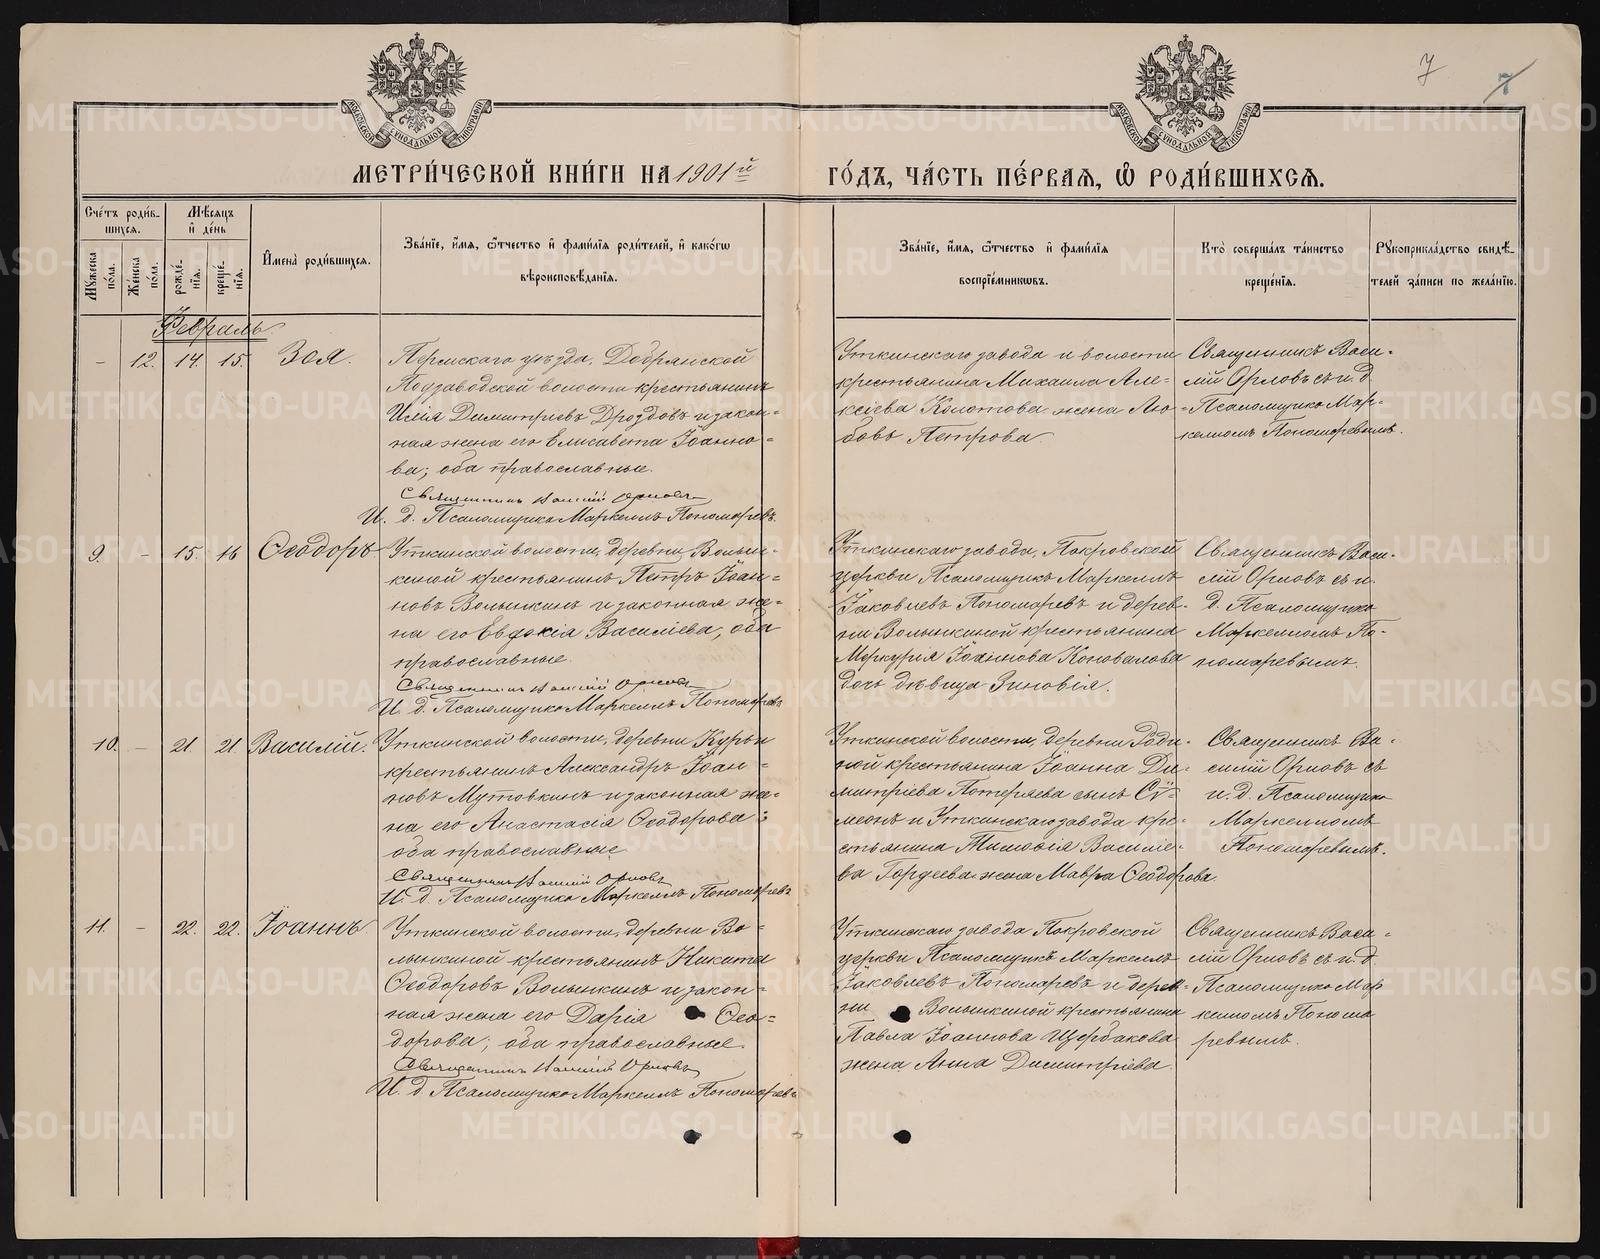 7
7
МОСКОВСКОЙ СѴНОДАЛЬНОЙ ТИПОГРАФІИ
МОСКОВСКОЙ СѴНОДАЛЬНОЙ ТИПОГРАФІИ
МЕТРИ́ЧЕСКОЙ КНИ́ГИ НА 1901й
ГО́ДЪ, ЧА́СТЬ ПЕ́РВАѦ, Ѽ РОДИ́ВШИХСѦ.
Сче́тъ роди́в-
шихся.
Мѣ́сяцъ
и҆ де́нь
Му́жеска
по́ла.
Же́нска
по́ла.
рожде́-
нїя.
креще́-
нїя.
И҆мена̀ роди́вшихся.
Зва́нїе, и҆́мя, ѻ҆́тчество и҆ фами́лїя роди́телей, и҆ како́гѡ
вѣроисповѣ́данїя.
Зва́нїе, и҆́мя, ѻ҆́тчество и҆ фами́лїя
воспрїе́мникѡвъ.
Кто̀ соверша́лъ та́инство
креще́нїя.
Рукоприкла́дство свидѣ́-
телей за́писи по жела́нїю.
Февраль
–
12.
14.
15.
Зоя.
Пермскаго уѣзда, Добрянской
Подзаводской волости крестьянинъ
Илія Димитріевъ Дроздовъ и закон-
ная жена его Елисавета Іоанно-
ва; оба православные.
Священникъ Василій Орловъ
И. д. Псаломщика Маркеллъ Пономаревъ.
Уткинскаго завода и волости
крестьянина Михаила Але-
ксіева Колотова жена Лю-
бовь Петрова.
Священникъ Васи-
лій Орловъ съ и. д.
Псаломщика Мар-
келломъ Пономаревымъ.
9.
–
15.
16
Ѳеодоръ
Уткинской волости, деревни Волын-
киной крестьянинъ Петръ Іоан-
новъ Волынкинъ и законная же-
на его Евдокія Василіева, оба
православные.
Священникъ Василій Орловъ
И. д. Псаломщика Маркеллъ Пономаревъ
Уткинскаго завода, Покровской
церкви Псаломщикъ Маркеллъ
Іаковлевъ Пономаревъ и дерев-
ни Волынкиной крестьянина
Меркурія Іоаннова Коновалова
дочь дѣвица Зиновія.
Священникъ Васи-
лій Орловъ съ и.
д. Псаломщика
Маркелломъ По-
номаревымъ.
10.
–
21.
21
Василій.
Уткинской волости, деревни Курьи
крестьянинъ Александръ Іоан-
новъ Мутовкинъ и законная же-
на его Анастасія Ѳеодорова;
оба православные
Священникъ Василій Орловъ
И. д. Псаломщика Маркеллъ Пономаревъ
Уткинской волости, деревни Роди-
ной крестьянина Іоанна Ди-
митріева Потеряева сынъ Сѵ-
меонъ и Уткинскаго завода кре-
стьянина Тимоѳія Василіе-
ва Гордѣева жена Мавра Ѳеодорова.
Священникъ Ва-
силій Орловъ съ
и. д. Псаломщика
Маркелломъ
Пономаревымъ.
11.
–
22.
22.
Іоаннъ.
Уткинской волости, деревни Во-
лынкиной крестьянинъ Никита
Ѳеодоровъ Волынкинъ и закон-
ная жена его Дарія Ѳео-
дорова; оба православные.
Священникъ Василій Орловъ
И. д. Псаломщика Маркеллъ Пономаревъ
Уткинскаго завода Покровской
церкви Псаломщикъ Маркеллъ
Іаковлевъ Пономаревъ и дерев-
ни Волынкиной крестьянина
Павла Іоаннова Щербакова
жена Анна Димитріева.
Священникъ Васи-
лій Орловъ съ и. д.
Псаломщика Мар
келломъ Понома
ревымъ.
METRIKI.GASO-URAL.RU